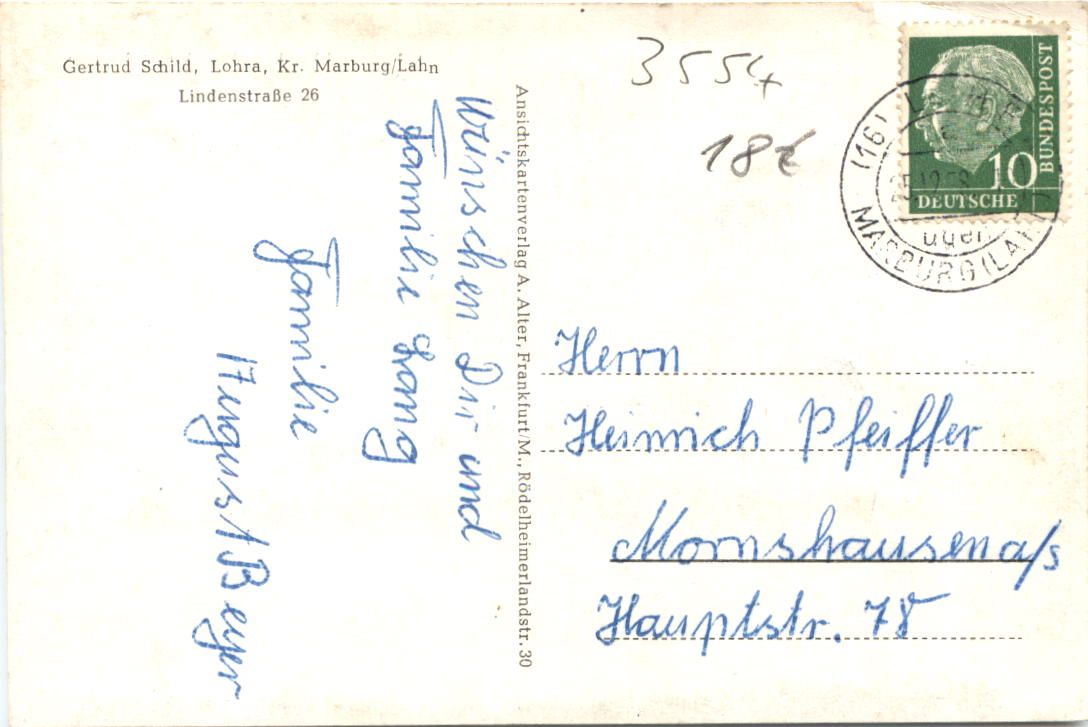 Gertrud Schild, Lohra, Kr. Marburg/Lahn
Lindenstraße 26
Wünschen Dir und
Familie Lang
Familie
August Beyer
Ansichtskartenverlag A. Alter, Frankfurt/M., Rödelheimerlandstr. 30
3554
18
BUNDESPOST
10
DEUTSCHE
(16)
MARBURG (LAHN)
Herrn
Heinrich Pfeiffer
Mornshausen a/s
Hauptstr. 78